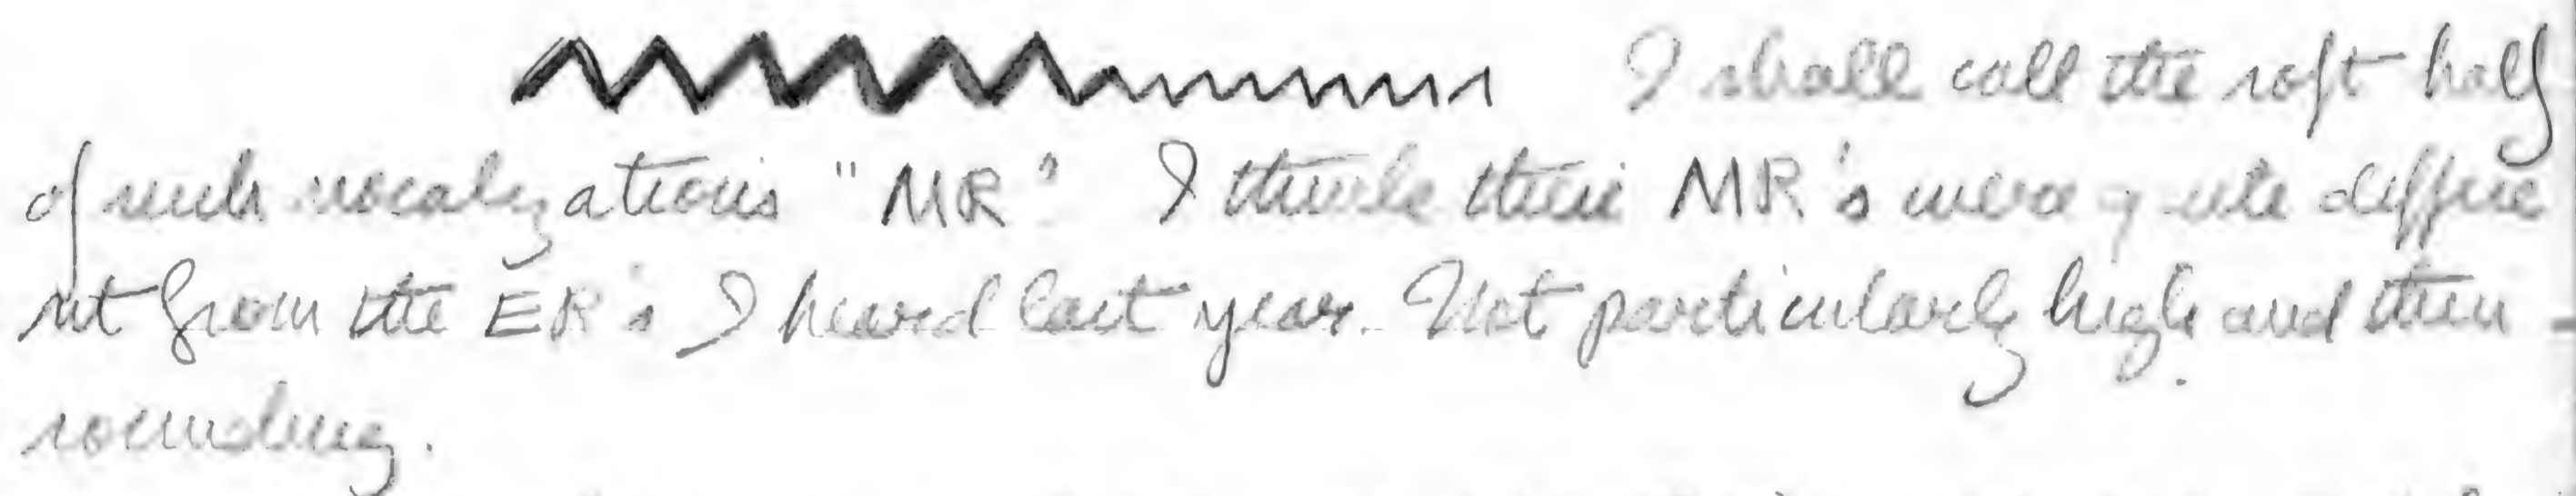 I shall call the soft half
of such vocalizations "MR" I think their MR's were quite differe
nt from the ER's I heard last year. Not particularly high and thin
sounding.